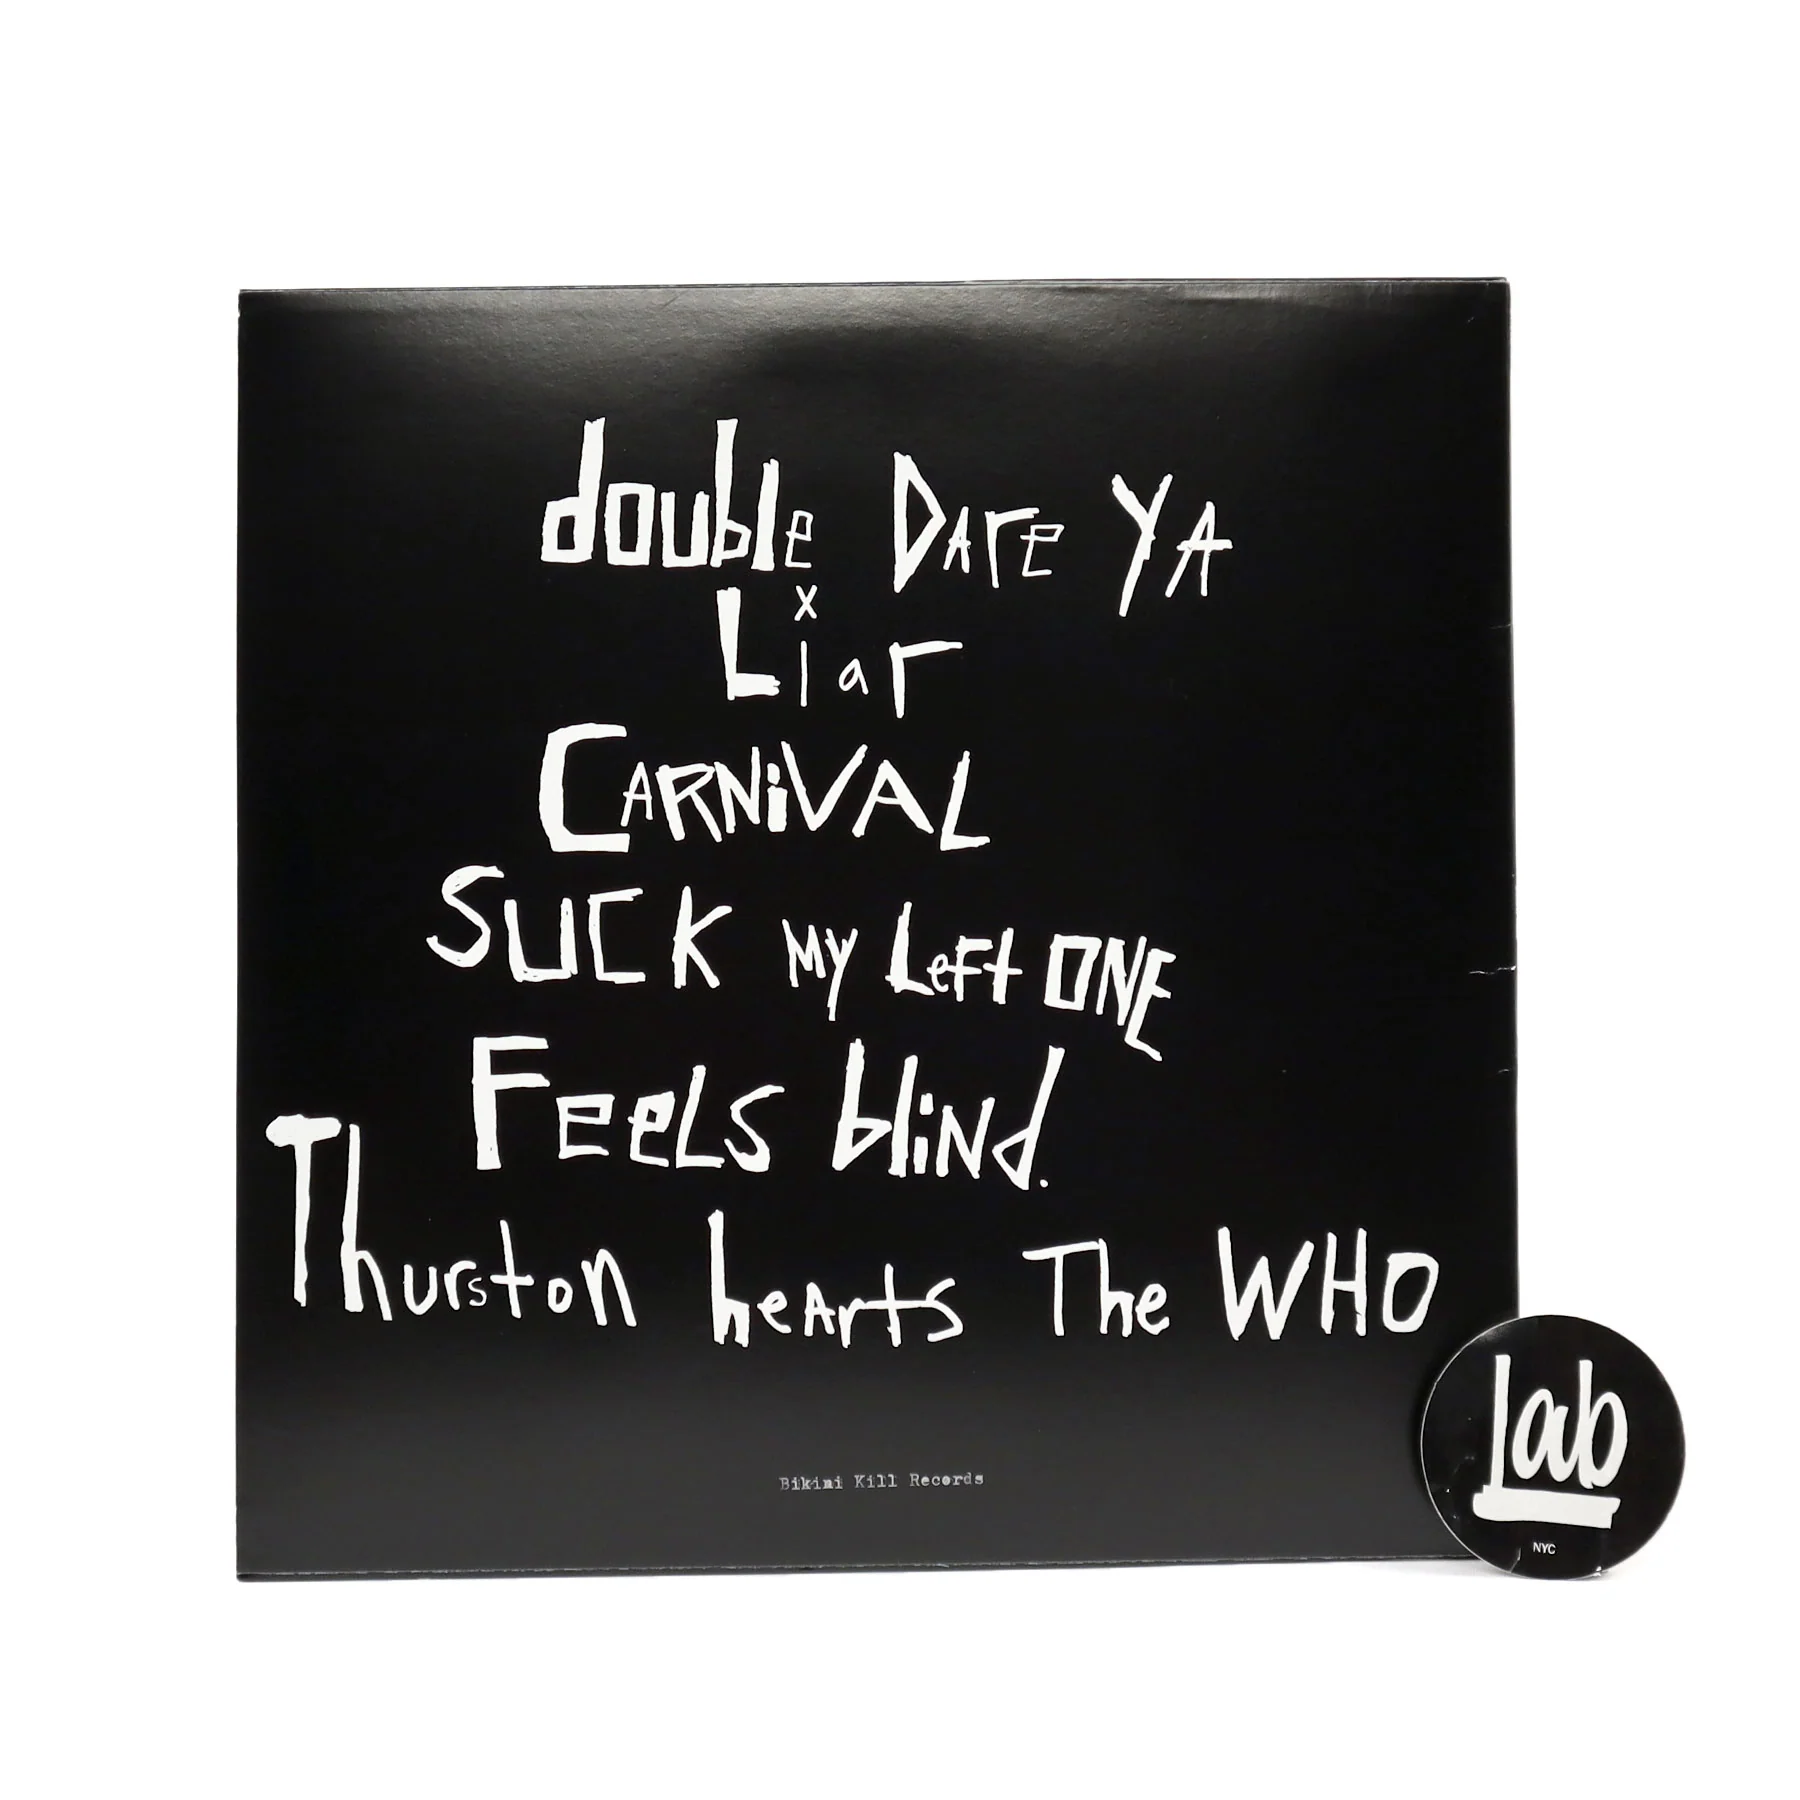 double Dare YA
Liar
CARNiVAL
SUCK MY Left ONE
FEELS blind.
Thurston hearts The WHO
Bikini Kill Records
Lab
NYC